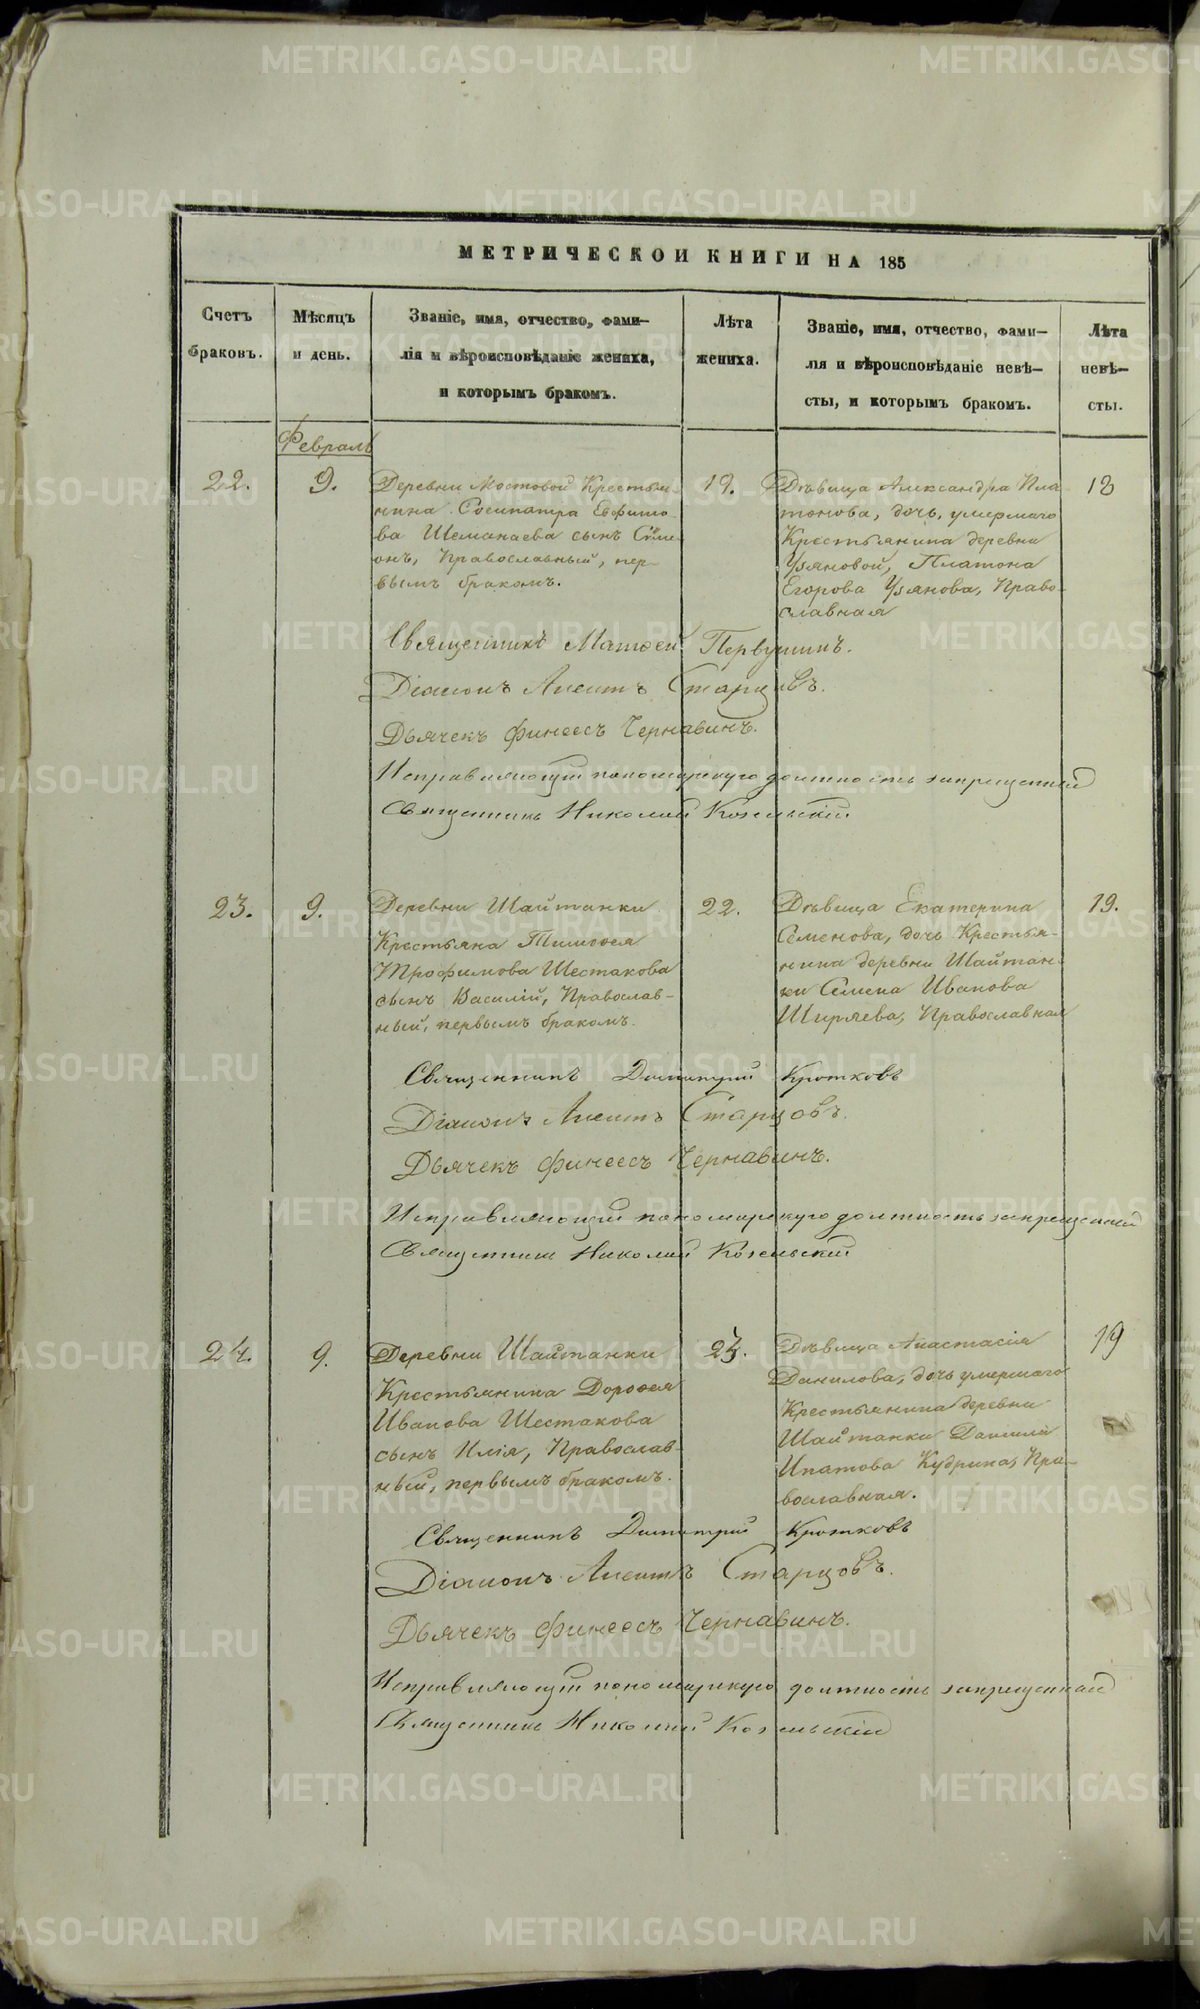 МЕТРИЧЕСКОЙ КНИГИ НА 185
Счетъ браковъ.
Мѣсяцъ и день.
Званіе, имя, отчество, фами-
лія и вѣроисповѣданіе жениха,
и которымъ бракомъ.
Лѣта жениха.
Званіе, имя, отчество, фами-
лія и вѣроисповѣданіе невѣ-
сты, и которымъ бракомъ.
Лѣта невѣ-
сты.
Февраль
22.
9.
Деревни Мостовой Крестья-
нина Сосипатра Евфимо-
ва Шеманаева сынъ Сѵме-
онъ, Православный, пер-
вымъ бракомъ.
19.
Дѣвица Александра Пла
тонова, дочь, умершаго
Крестьянина деревни
Узяновой, Платона
Егорова Узянова, Право-
славная
18
Священникъ Матѳей Первушинъ.
Діаконъ Акентъ Старцовъ.
Дьячекъ Финеесъ Чернавинъ.
Исправляющій пономарскую должность запрещенный
Священникъ Николай Козельскій
23.
9.
Деревни Шайтанки
Крестьяна Тимоѳея
Трофимова Шестакова
сынъ Василій, Православ-
ный, первымъ бракомъ.
22.
Дѣвица Екатерина
Семенова, дочь Крестья-
нина деревни Шайтан-
ки Семена Иванова
Ширяева, Православная
19.
Священникъ Димитрій Кротковъ
Діаконъ Акентъ Старцовъ.
Дьячекъ Финеесъ Чернавинъ.
Исправляющій пономарскую должность запрещенный
Священникъ Николай Козельскій
24.
9.
Деревни Шайтанки
Крестьянина Дороѳея
Иванова Шестакова
сынъ Илія, Православ-
ный, первымъ бракомъ.
23.
Дѣвица Анастасія
Данилова, дочь умершаго
Крестьянина деревни
Шайтанки Данилы
Ипатова Кудрина, Пра-
вославная.
19
Священникъ Димитрій Кротковъ
Діаконъ Акентъ Старцовъ.
Дьячекъ Финеесъ Чернавинъ.
Исправляющій пономарскую должность запрещенный
Священникъ Николай Козельскій
METRIKI.GASO-URAL.RU